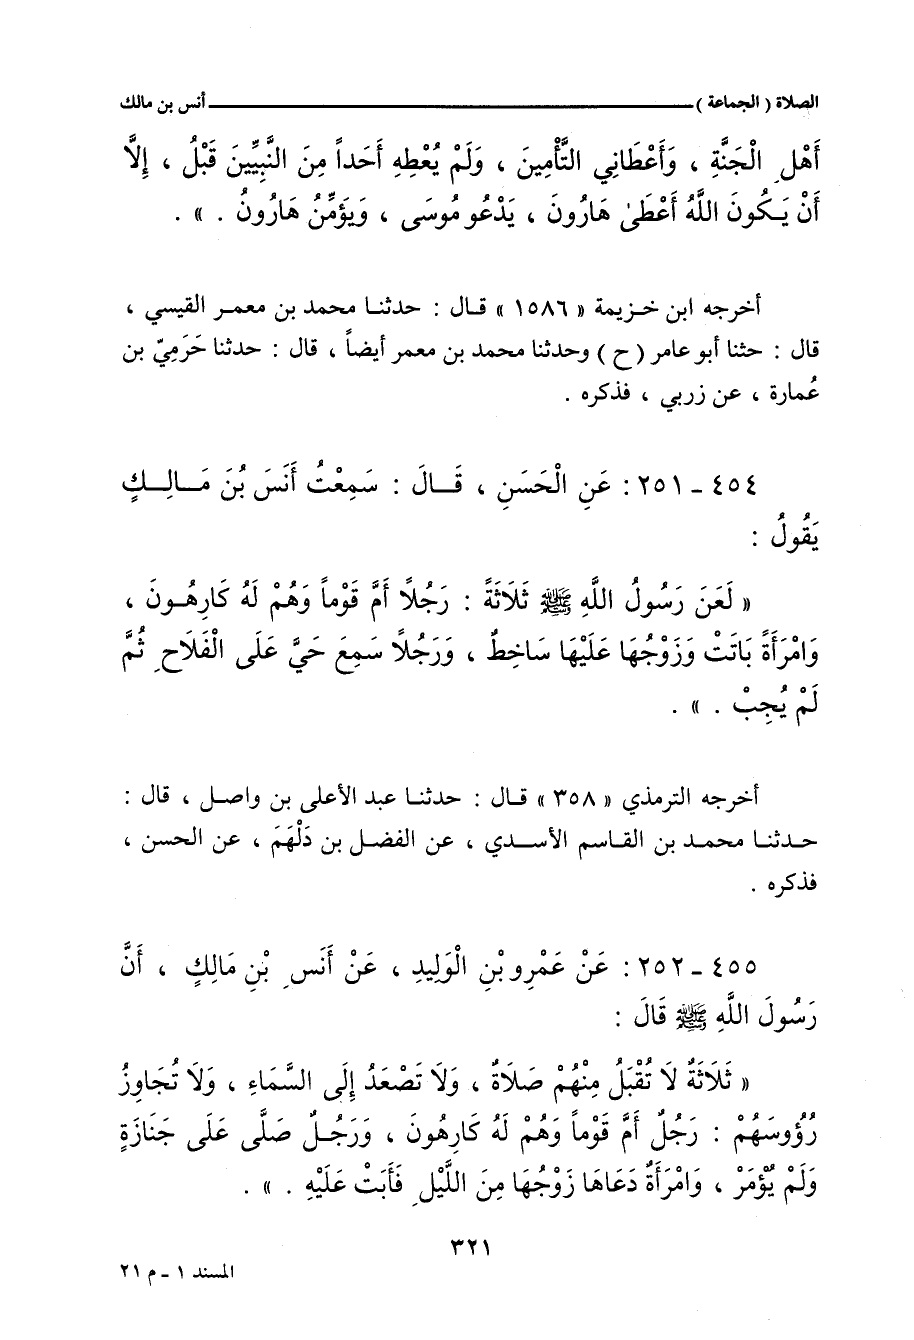 الصلاة ( الجماعة ) ــــــــــــــــــــ أنس بن مالك
أَهْلِ الْجَنَّةِ ، وَأَعْطَانِي التَّأْمِينَ ، وَلَمْ يُعْطِهِ أَحَداً مِنَ النَّبِيِّينَ قَبْلُ ، إِلَّا
أَنْ يَكُونَ اللَّهُ أَعْطَىٰ هَارُونَ ، يَدْعُو مُوسَى ، وَيَؤَمِّنُ هَارُونُ . » .
أخرجه ابن خزيمة « ١٥٨٦ » قال : حدثنا محمد بن معمر القيسي ،
قال : حثنا أبو عامر ( ح ) وحدثنا محمد بن معمر أيضاً ، قال : حدثنا حَرَمِيّ بن
عُمارة ، عن زربي ، فذكره .
٤٥٤ - ٢٥١ : عَنِ الْحَسَنِ ، قَالَ : سَمِعْتُ أَنَسَ بْنَ مَالِكٍ
يَقُولُ :
« لَعَنَ رَسُولُ اللَّهِ ﷺ ثَلَاثَةً : رَجُلًا أَمَّ قَوْماً وَهُمْ لَهُ كَارِهُونَ ،
وَامْرَأَةً بَاتَتْ وَزَوْجُهَا عَلَيْهَا سَاخِطٌ ، وَرَجُلًا سَمِعَ حَيَّ عَلَى الْفَلَاحِ ثُمَّ
لَمْ يُجِبْ . » .
أخرجه الترمذي « ٣٥٨ » قال : حدثنا عبد الأعلى بن واصل ، قال :
حدثنا محمد بن القاسم الأسدي ، عن الفضل بن دَلْهَمَ ، عن الحسن ،
فذكره .
٤٥٥ - ٢٥٢ : عَنْ عَمْرِو بْنِ الْوَلِيدِ ، عَنْ أَنَسِ بْنِ مَالِكٍ ، أَنَّ
رَسُولَ اللَّهِ ﷺ قَالَ :
« ثَلَاثَةٌ لَا تُقْبَلُ مِنْهُمْ صَلَاةٌ ، وَلَا تَصْعَدُ إِلَى السَّمَاءِ ، وَلَا تُجَاوِزُ
رُؤُوسَهُمْ : رَجُلٌ أَمَّ قَوْماً وَهُمْ لَهُ كَارِهُونَ ، وَرَجُلٌ صَلَّى عَلَى جَنَازَةٍ
وَلَمْ يُؤْمَرْ ، وَامْرَأَةٌ دَعَاهَا زَوْجُهَا مِنَ اللَّيْلِ فَأَبَتْ عَلَيْهِ . » .
٣٢١
المسند ١ - م ٢١